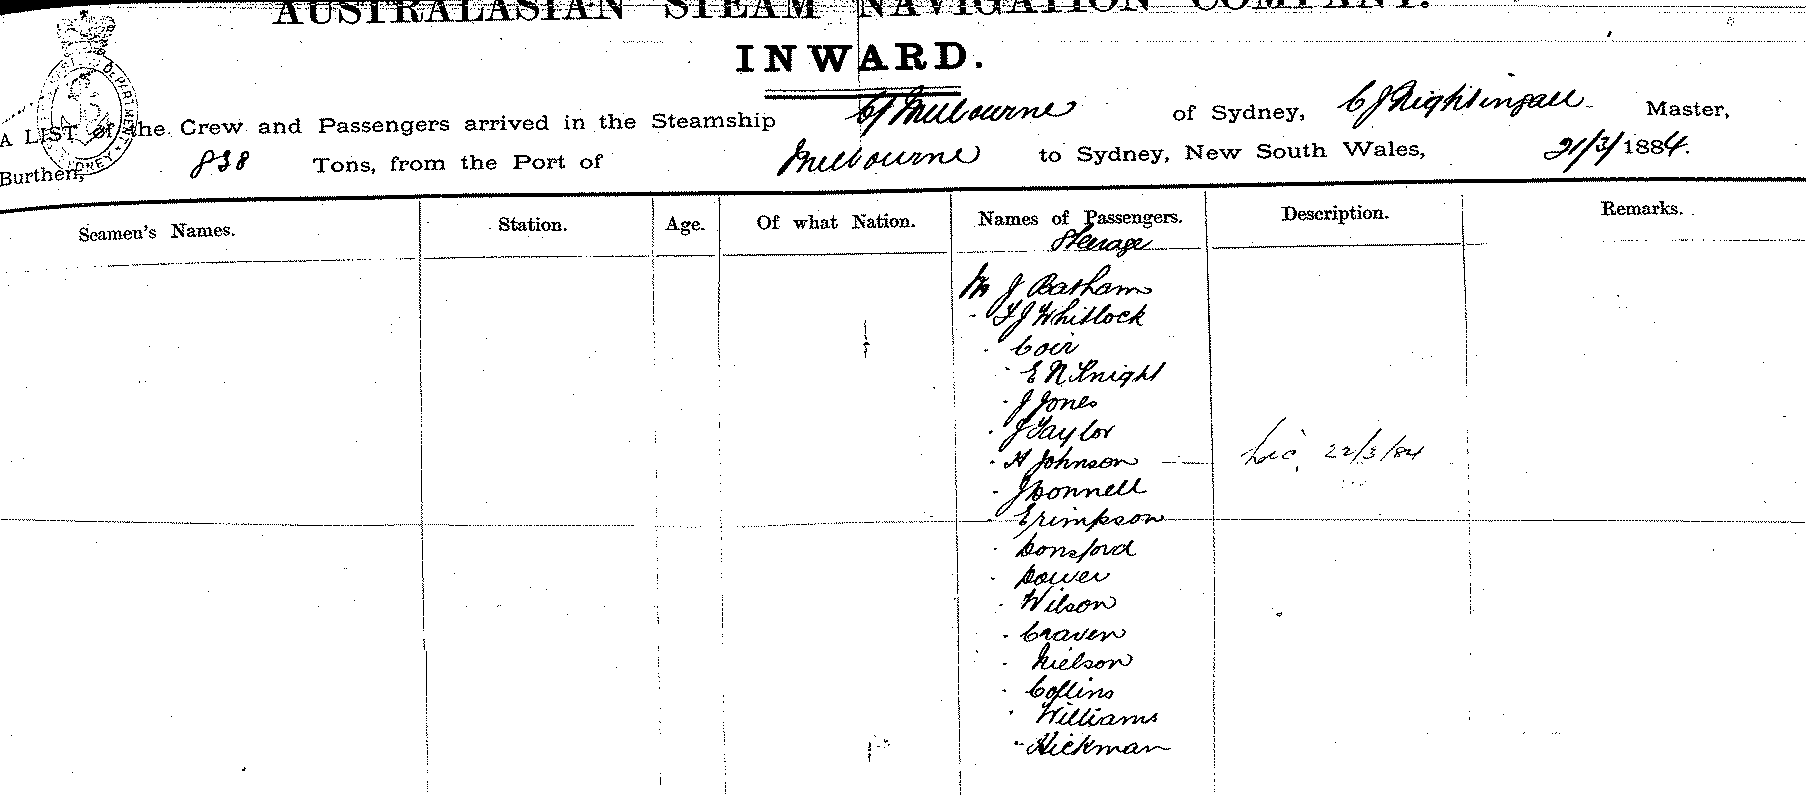 AUSTRALASIAN STEAM NAVIGATION COMPANY.
INWARD.
A LIST of the Crew and Passengers arrived in the Steamship Cy Melbourne of Sydney, C J Nightingall Master,
Burthen, 838 Tons, from the Port of Melbourne to Sydney, New South Wales, 21/3/1884.
Seamen's Names. Station. Age. Of what Nation. Names of Passengers. Description. Remarks.
Steerage
Mr J Basham
" F J Whitlock
" Coir
" E N Knight
" J Jones
" J Taylor
" H Johnson — Lic. 22/3/84
" J Donnell
" E Simpson
" Donsford
" Dower
" Wilson
" Craven
" Nielson
" Collins
" Williams
" Hickman